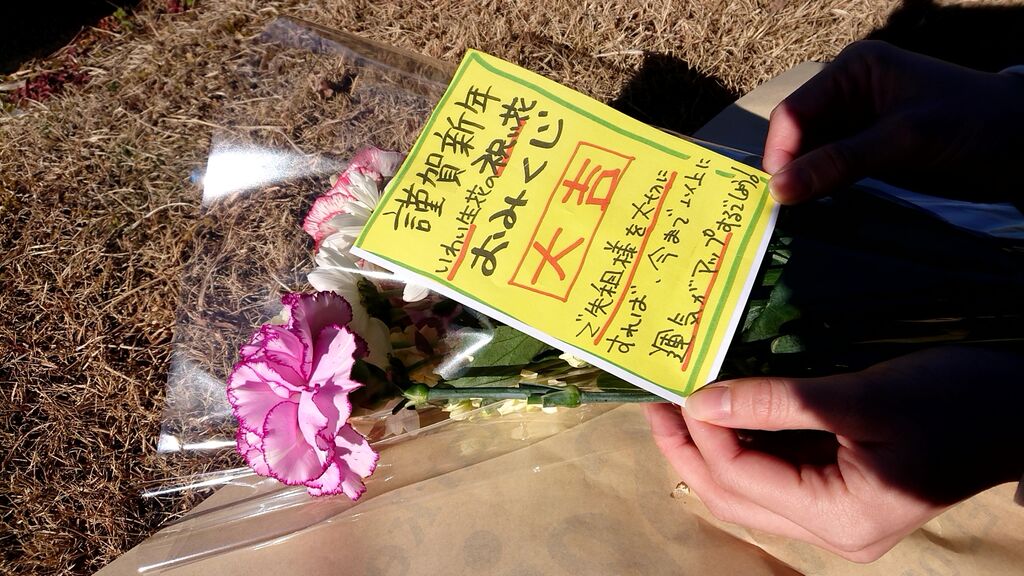 謹賀新年
いわい生花の祝い花
おみくじ
大吉
ご先祖様を大切に
すれば、今まで以上に
運気がアップするでしょう